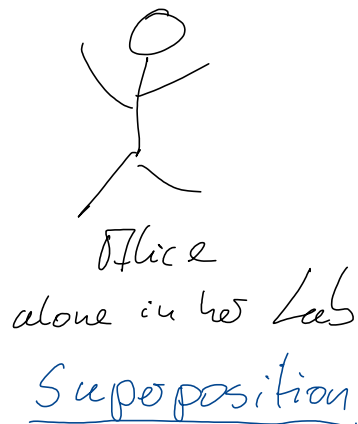 Alice
alone in her Lab
Superposition